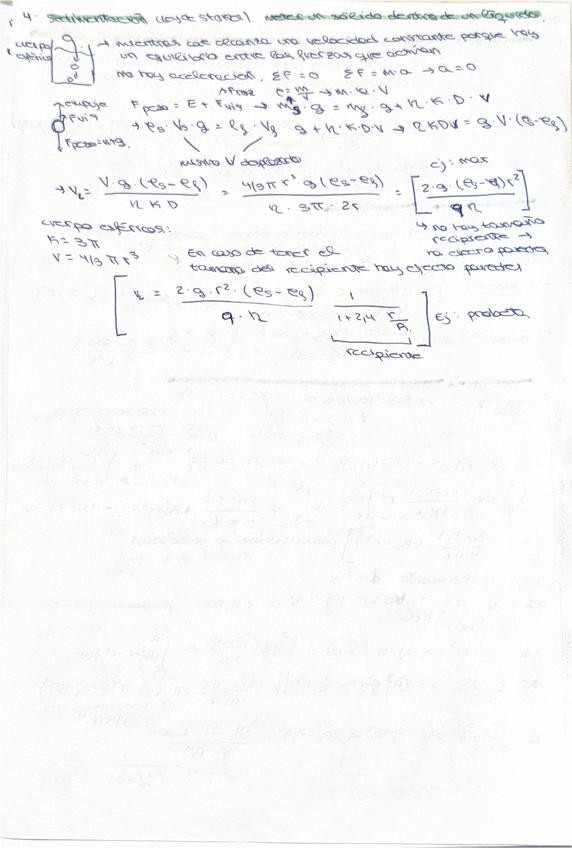 4. Sedimentación (Ley de Stokes) Meter un sólido dentro de un líquido.
cuerpo esférico
→ mientras cae alcanza una velocidad constante porque hay
un equilibrio entre las fuerzas que actúan
no hay aceleración. ΣF = 0 ΣF = m·a → a = 0
empuje
Fvis
Fpeso = m·g.
Fpeso = E + Fvis → m·g = m·g + η·K·D·V
→ ρs·Vs·g = ρf·Vf·g + η·K·D·V → ηKDV = g·V·(ρs-ρf)
mismo V desplazado
Ej: mar
→ VL = V·g·(ρs-ρf) / η K D = 4/3 π r³ g (ρs-ρf) / η·3π·2r = [2·g·(ρs-ρf) r² / 9 η]
cuerpo esféricos:
K = 3π
V = 4/3 π r³
↳ no hay tamaño
recipiente →
no efecto paredes
En caso de tener el
tamaño del recipiente hay efecto paredes
[VL = 2·g·r²·(ρs-ρf) / 9·η 1 / 1+2,4 r/R] Ej: probeta
recipiente